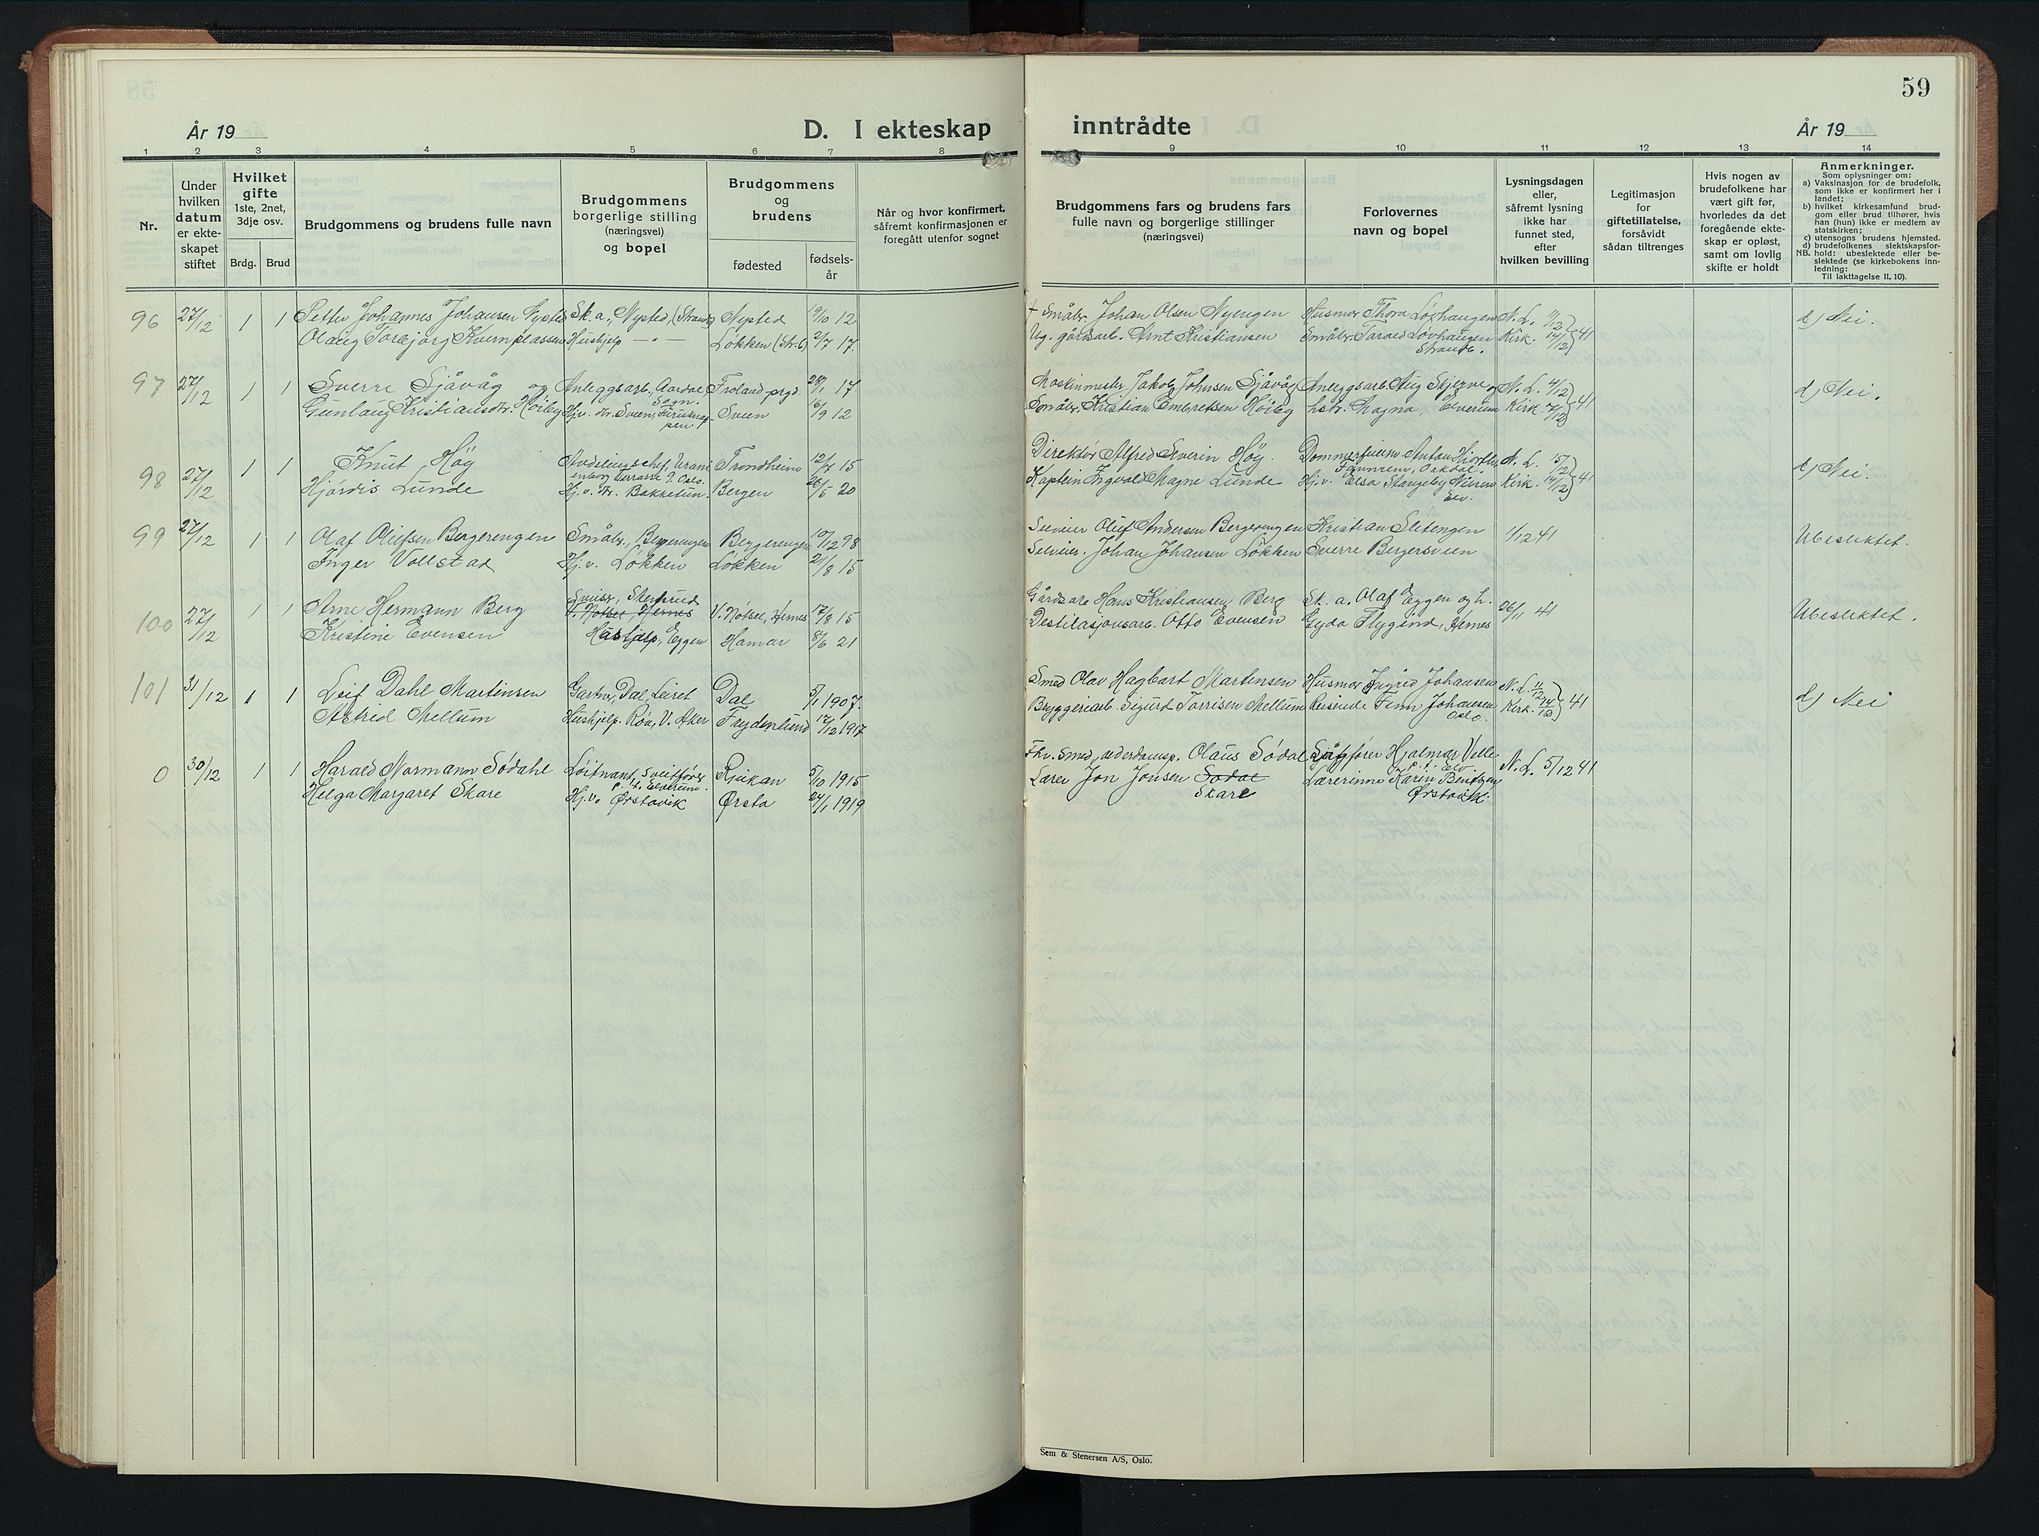 59
År 19
D. I ekteskap
inntrådte
År 19
1 2 3 4 5 6 7 8 9 10 11 12 13 14
Nr.
Under
hvilken
datum
er ekte-
skapet
stiftet
Hvilket
gifte
1ste, 2net,
3dje osv.
Brdg. Brud
Brudgommens og brudens fulle navn
Brudgommens
borgerlige stilling
(næringsvei)
og bopel
Brudgommens
og
brudens
fødested
fødsels-
år
Når og hvor konfirmert,
såfremt konfirmasjonen er
foregått utenfor sognet
Brudgommens fars og brudens fars
fulle navn og borgerlige stillinger
(næringsvei)
Forlovernes
navn og bopel
Lysningsdagen
eller,
såfremt lysning
ikke har
funnet sted,
efter
hvilken bevilling
Legitimasjon
for
giftetillatelse,
forsåvidt
sådan tiltrenges
Hvis nogen av
brudefolkene har
vært gift før,
hvorledes da det
foregående ekte-
skap er opløst,
samt om lovlig
skifte er holdt
Anmerkninger.
Som oplysninger om:
a) Vaksinasjon for de brudefolk,
som ikke er konfirmert her i
landet;
b) hvilket kirkesamfund brud-
gom eller brud tilhører, hvis
han (hun) ikke er medlem av
statskirken;
c) utensogns brudens hjemsted.
d) brudefolkenes slektskapsfor-
NB. hold: ubeslektede eller be-
slektede (se kirkebokens inn-
ledning:
Til iakttagelse II. 10).
96 27/12 1 1 Petter Johannes Johansen Nysted Sk. a., Nysted, (Strands) Nysted 19/10 12 + Småbr. Johan Olsen Nyengen Husmor Thora Løkhaugen N. L. 11/12 41 d) Nei.
Olaug Torbjørg Kvernplassen Hushjelp — „ — Løkken (Str.b) 2/7 17. Ug. gårdsarb. Arnt Kristiansen Småbr. Tarald Løvhaugen Kirk. 14/12
Strandb.
97 27/12 1 1 Sverre Sjåvåg og Anleggsarb., Aardal Froland prgd. 28/1 17 Maskinmester Jakob Johnsen Sjåvåg Anleggsarb. Stig Skjerve og N. L. 4/12 41 d) Nei.
Sogn.
Gunlaug Kristiansdtr. Høiby Hj. v. Dr. Sveen, Furuknap- Sveen 16/9 12 Småbr. Kristian Embretsen Høiby hstr. Magna, Elverum Kirk. 7/12
pen
98 27/12 1 1 Knut Høg Avdelingschef, Urani- Trondheim 12/7 15 Direktør Alfred Severin Høg Dommerfullm. Anton Hjorth N. L. 5/12 41 d) Nei.
enborg Terrasse 9. Oslo. Fannrem, Orkdal.
Hjørdis Lunde Hj. v. Dr. Bakketun. Bergen 26/5 20 Kaptein Ingvald Magne Lunde Hj. v. Elsa Stangeby Nielsen Kirk. 14/12
Elv.
99 27/12 1 1 Olaf Olufsen Bergerengen Småbr., Bergerengen Bergerengen 17/12 98 Selveier Oluf Andersen Bergerengen Kristian Slitengen 1/12 41 Ubeslektet.
Inger Vollstad Hj. v. Løkken Løkken 21/8 15 Selveier. Johan Johansen Løkken Sverre Bergersveen
100 27/12 1 1 Arne Hermann Berg Sveiser, Stensrud V. Nøtsel, Hernes 17/8 15 Gårdsarb. Hans Kristiansen Berg Sk. a. Olaf Eggen og h. 26/11 41 Ubeslektet.
V. Nøtsel Hernes
Kristine Evensen Hushjelp, Eggen Hamar 8/6 21 Destilasjonsarb. Otto Evensen Gyda Flygind, Hernes
101 31/12 1 1 Leif Dahl Martinsen Gartner, Dal Leiret Dal 5/1 1907. Smed Olav Hagbart Martinsen Husmor Ingrid Johansen N. L. 11/12 41 d) Nei
Astrid Mellum Hushjelp. Røa, V. Aker Frydenlund 17/12 1917 Bryggeriarb. Sigurd Torrisen Mellum Reisende Finn Johansen Kirk. 14/12
Oslo.
0 30/12 1 1 Harald Normann Sødahl Løitnant, Rjukan 5/10 1915 Fhv. Smed, alderdomsp. Olaus Sødal Sjåfør Hjalmar Velle N. L. 5/12 41
p. t. Elverum p. t. Elv
Helga Margaret Skare Hj. v. Ørstavik Ørsta 24/1 1919 Lærer Jon Jonsen Sødal Lærerinne Karin Bentzen
Skare Ørstavik.
Sem & Stenersen A/S, Oslo.